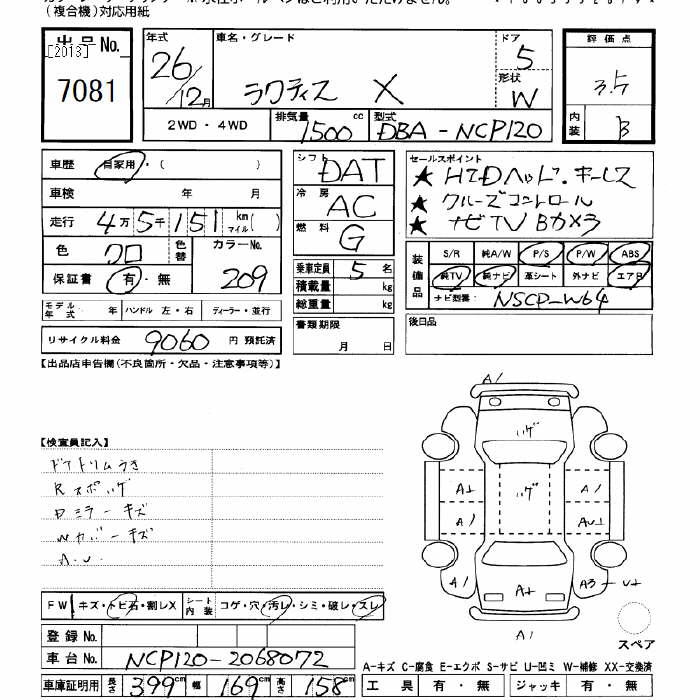 (複合機)対応用紙
出品No.
[2013]
7081
年式
26/12月
車名・グレード
ラクティス X
ドア
5
形状
W
評価点
3.5
内装
B
2WD・4WD
排気量
1500 cc
型式
DBA-NCP120
車歴
自家用・( )
車検 年 月
走行 4万5千151 km マイル( )
色 クロ
色替
カラーNo.
209
保証書 有・無
シフト
DAT
冷房
AC
燃料
G
乗車定員 5 名
積載量 kg
総重量 kg
書類期限
月 日
セールスポイント
★ HIDヘッド・キーレス
★ クルーズコントロール
★ ナビTV Bカメラ
装備品
S/R 純A/W P/S P/W ABS
純TV 純ナビ 革シート 外ナビ エアB
ナビ型番 NSCP-W64
モデル年式 年 ハンドル 左・右 ディーラー・並行
リサイクル料金 9060 円 預託済
後日品
【出品店申告欄(不良箇所・欠品・注意事項等)】
【検査員記入】
ドアトリムうき
Rスポ ハゲ
Dミラーキズ
Wカバーキズ
A.U.
A1
ハゲ
A1 ハゲ A1
A1 AU1
A1 A1 A3 U1
A1
スペア
FW キズ・トビ石・割レX
シート内装 コゲ・穴・汚レ・シミ・破レ・スレ
登録No.
車台No. NCP120-2068072
車庫証明用 長さ 399cm 幅 169cm 高さ 158cm
A-キズ C-腐食 E-エクボ S-サビ U-凹ミ W-補修 XX-交換済
工具 有・無 ジャッキ 有・無